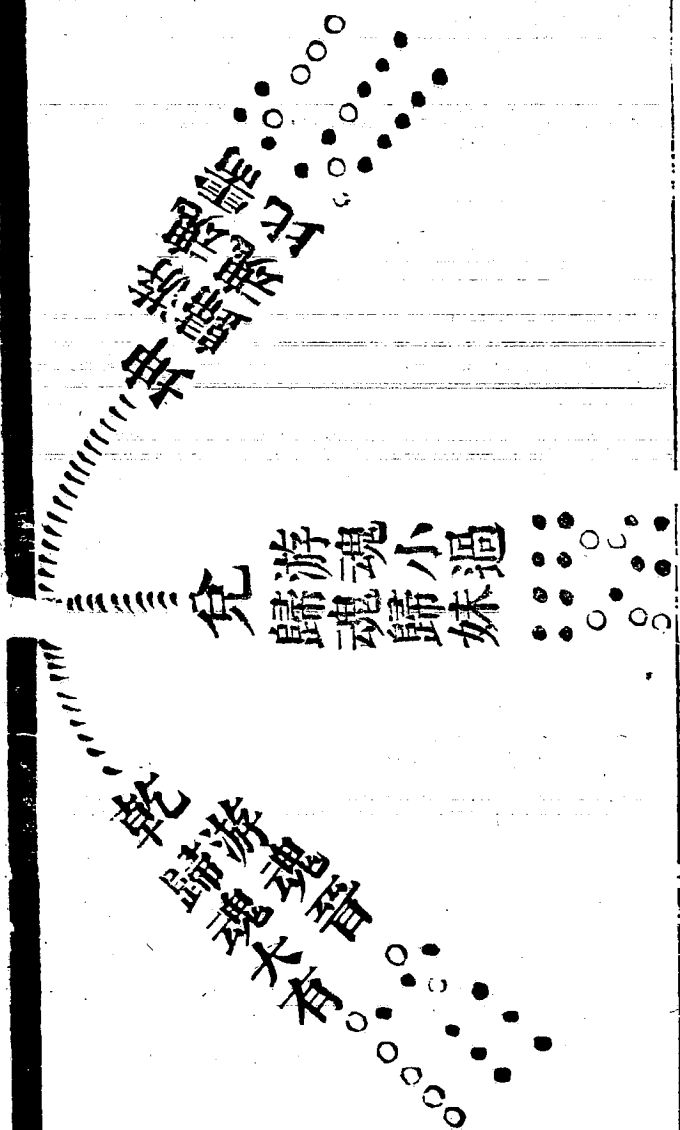 坤
游魂需
歸魂比
兌
游魂小過
歸魂歸妹
乾
游魂晉
歸魂大有